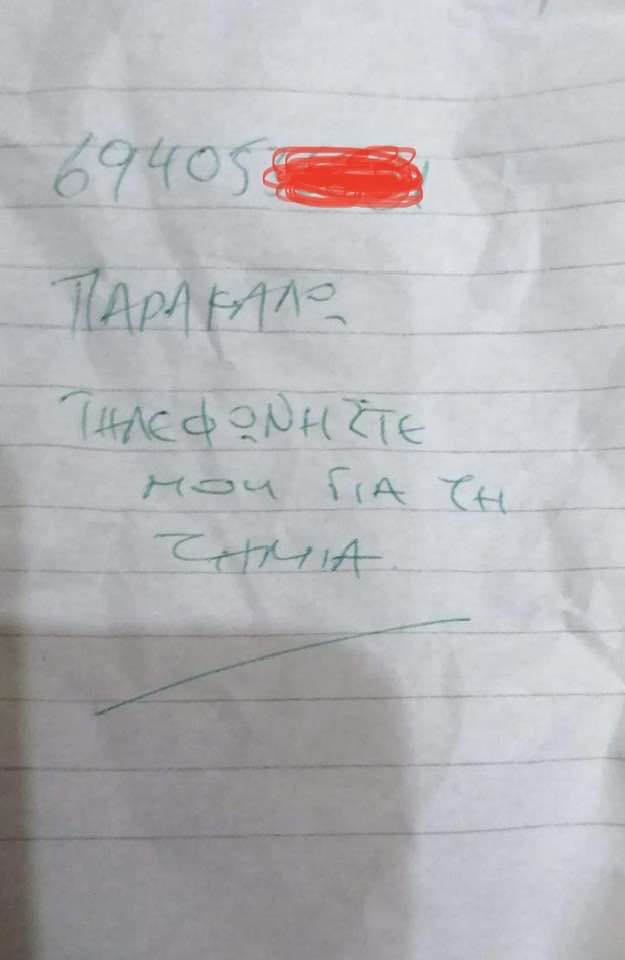 69405
ΠΑΡΑΚΑΛΩ
ΤΗΛΕΦΩΝΗΣΤΕ
ΜΟΥ ΓΙΑ ΤΗ
ΖΗΜΙΑ.